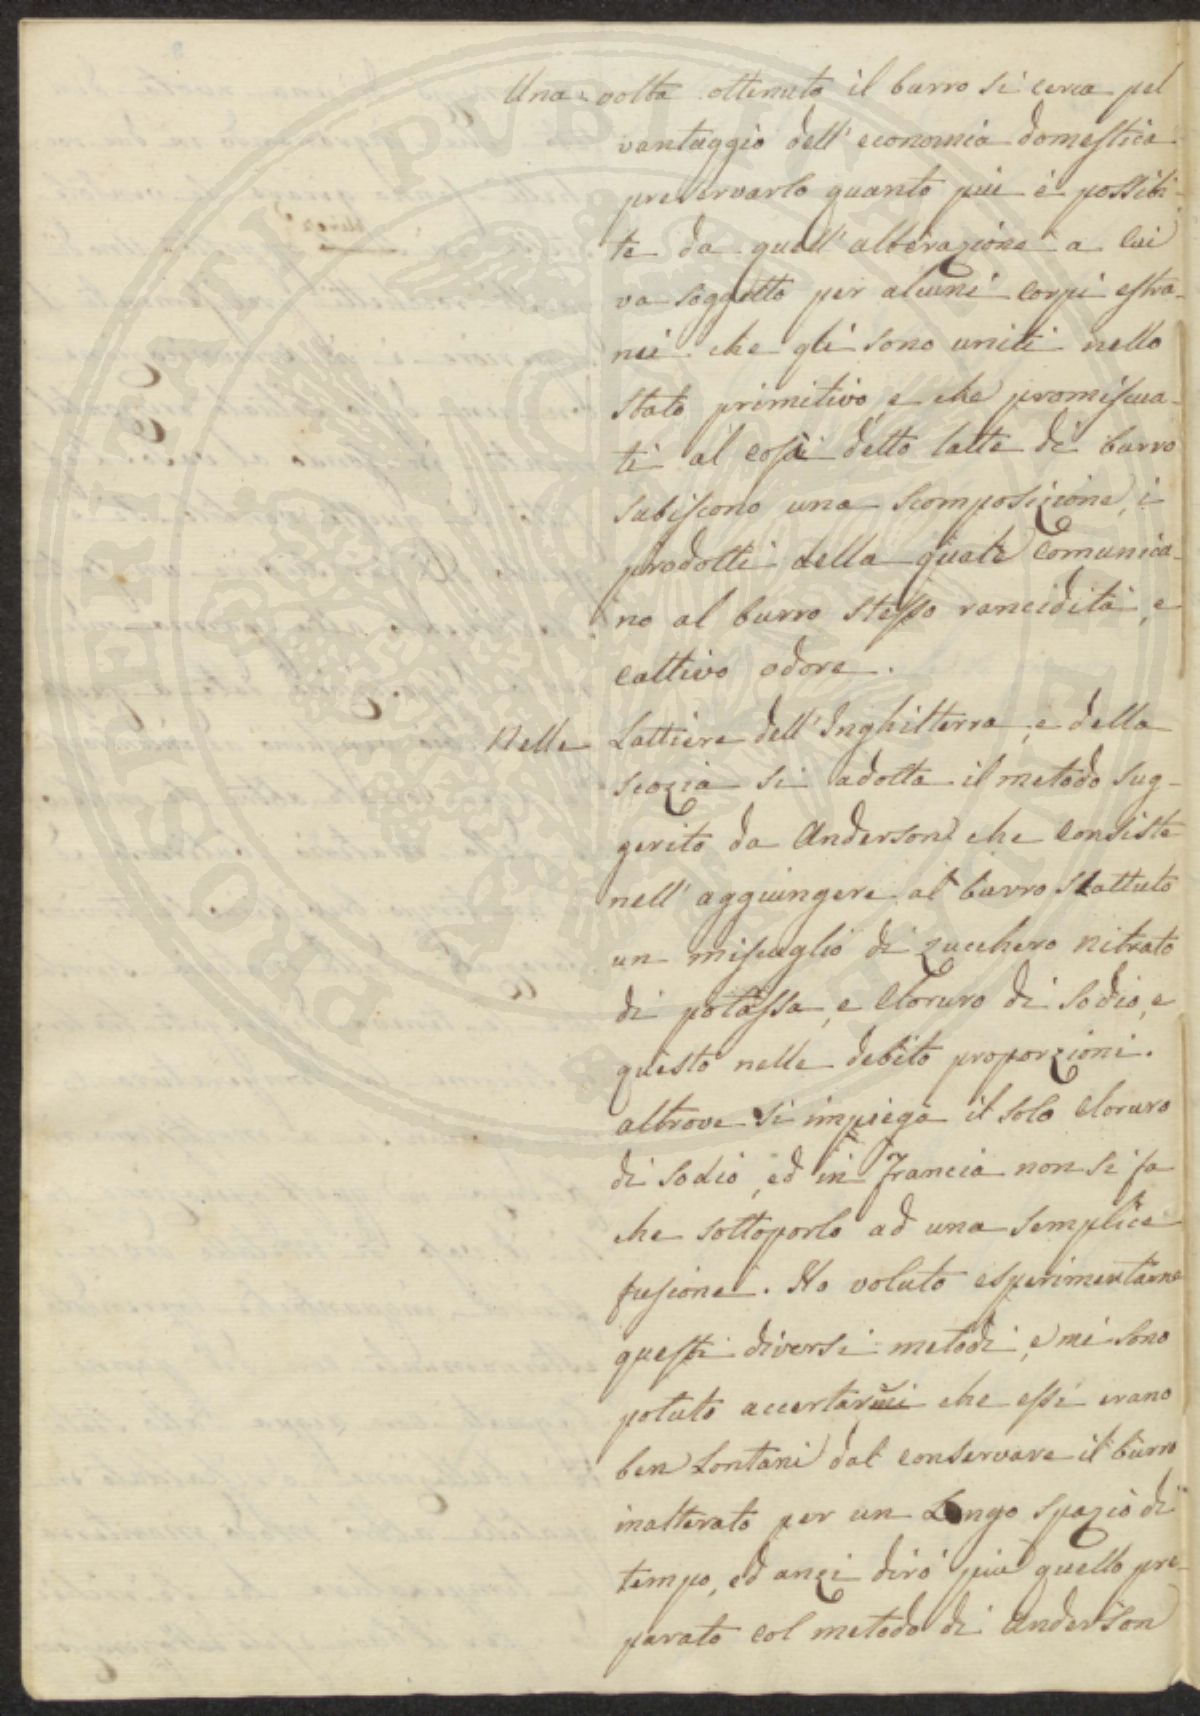 Una volta ottenuto il burro si cerca pel
vantaggio dell'economia domestica
preservarlo quanto più è possibi-
le da quell'alterazione a cui
va soggetto per alcuni corpi estra-
nei che gli sono uniti nello
stato primitivo, e che promiscua-
ti al così detto latte di burro
subiscono una scomposizione, i
prodotti della quale comunica-
no al burro stesso rancidità, e
cattivo odore.
Nelle Lattiere dell'Inghilterra, e della
scozia si adotta il metodo sug-
gerito da Anderson che consiste
nell'aggiungere al burro sbattuto
un miscuglio di zucchero nitrato
di potassa, e Cloruro di sodio, e
questo nelle debite proporzioni.
altrove si impiega il solo Cloruro
di sodio, ed in Francia non si fa
che sottoporlo ad una semplice
fusione. Ho voluto esperimentarne
questi diversi metodi, e mi sono
potuto accertarmi che essi erano
ben Lontani dal conservare il burro
inalterato per un Longo spazio di
tempo, ed anzi dirò più quello pre-
parato col metodo di Anderson
PROPRIETATI PVBLICAE